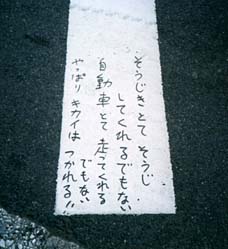 そうじきとて そうじ
してくれるでもない
自動車とて走ってくれる
でもない
やっぱりキカイは
つかれる!!